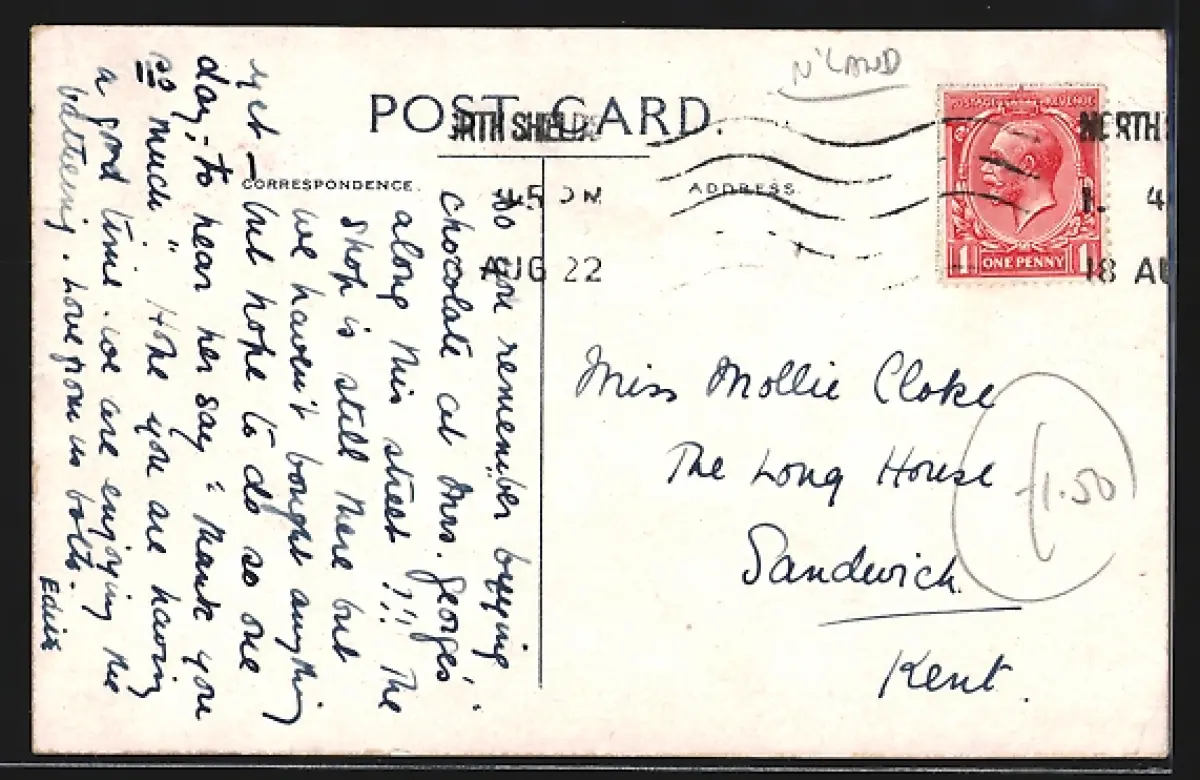 N'LAND
POST CARD.
NORTH
4.45 PM
AUG 22
18 AU
CORRESPONDENCE.
ADDRESS.
POSTAGE REVENUE
1 ONE PENNY 1
Do you remember buying
chocolate at Mrs. Georges'
along this street?!! The
shop is still there but
we haven't bought anything
yet – but hope to do so one
day, to hear her say "thank you
so much" Hope you are having
a good time. we are enjoying the
bathing. Love from us both.
Miss Mollie Cloke
The Long House
Sandwich.
Kent.
1.50